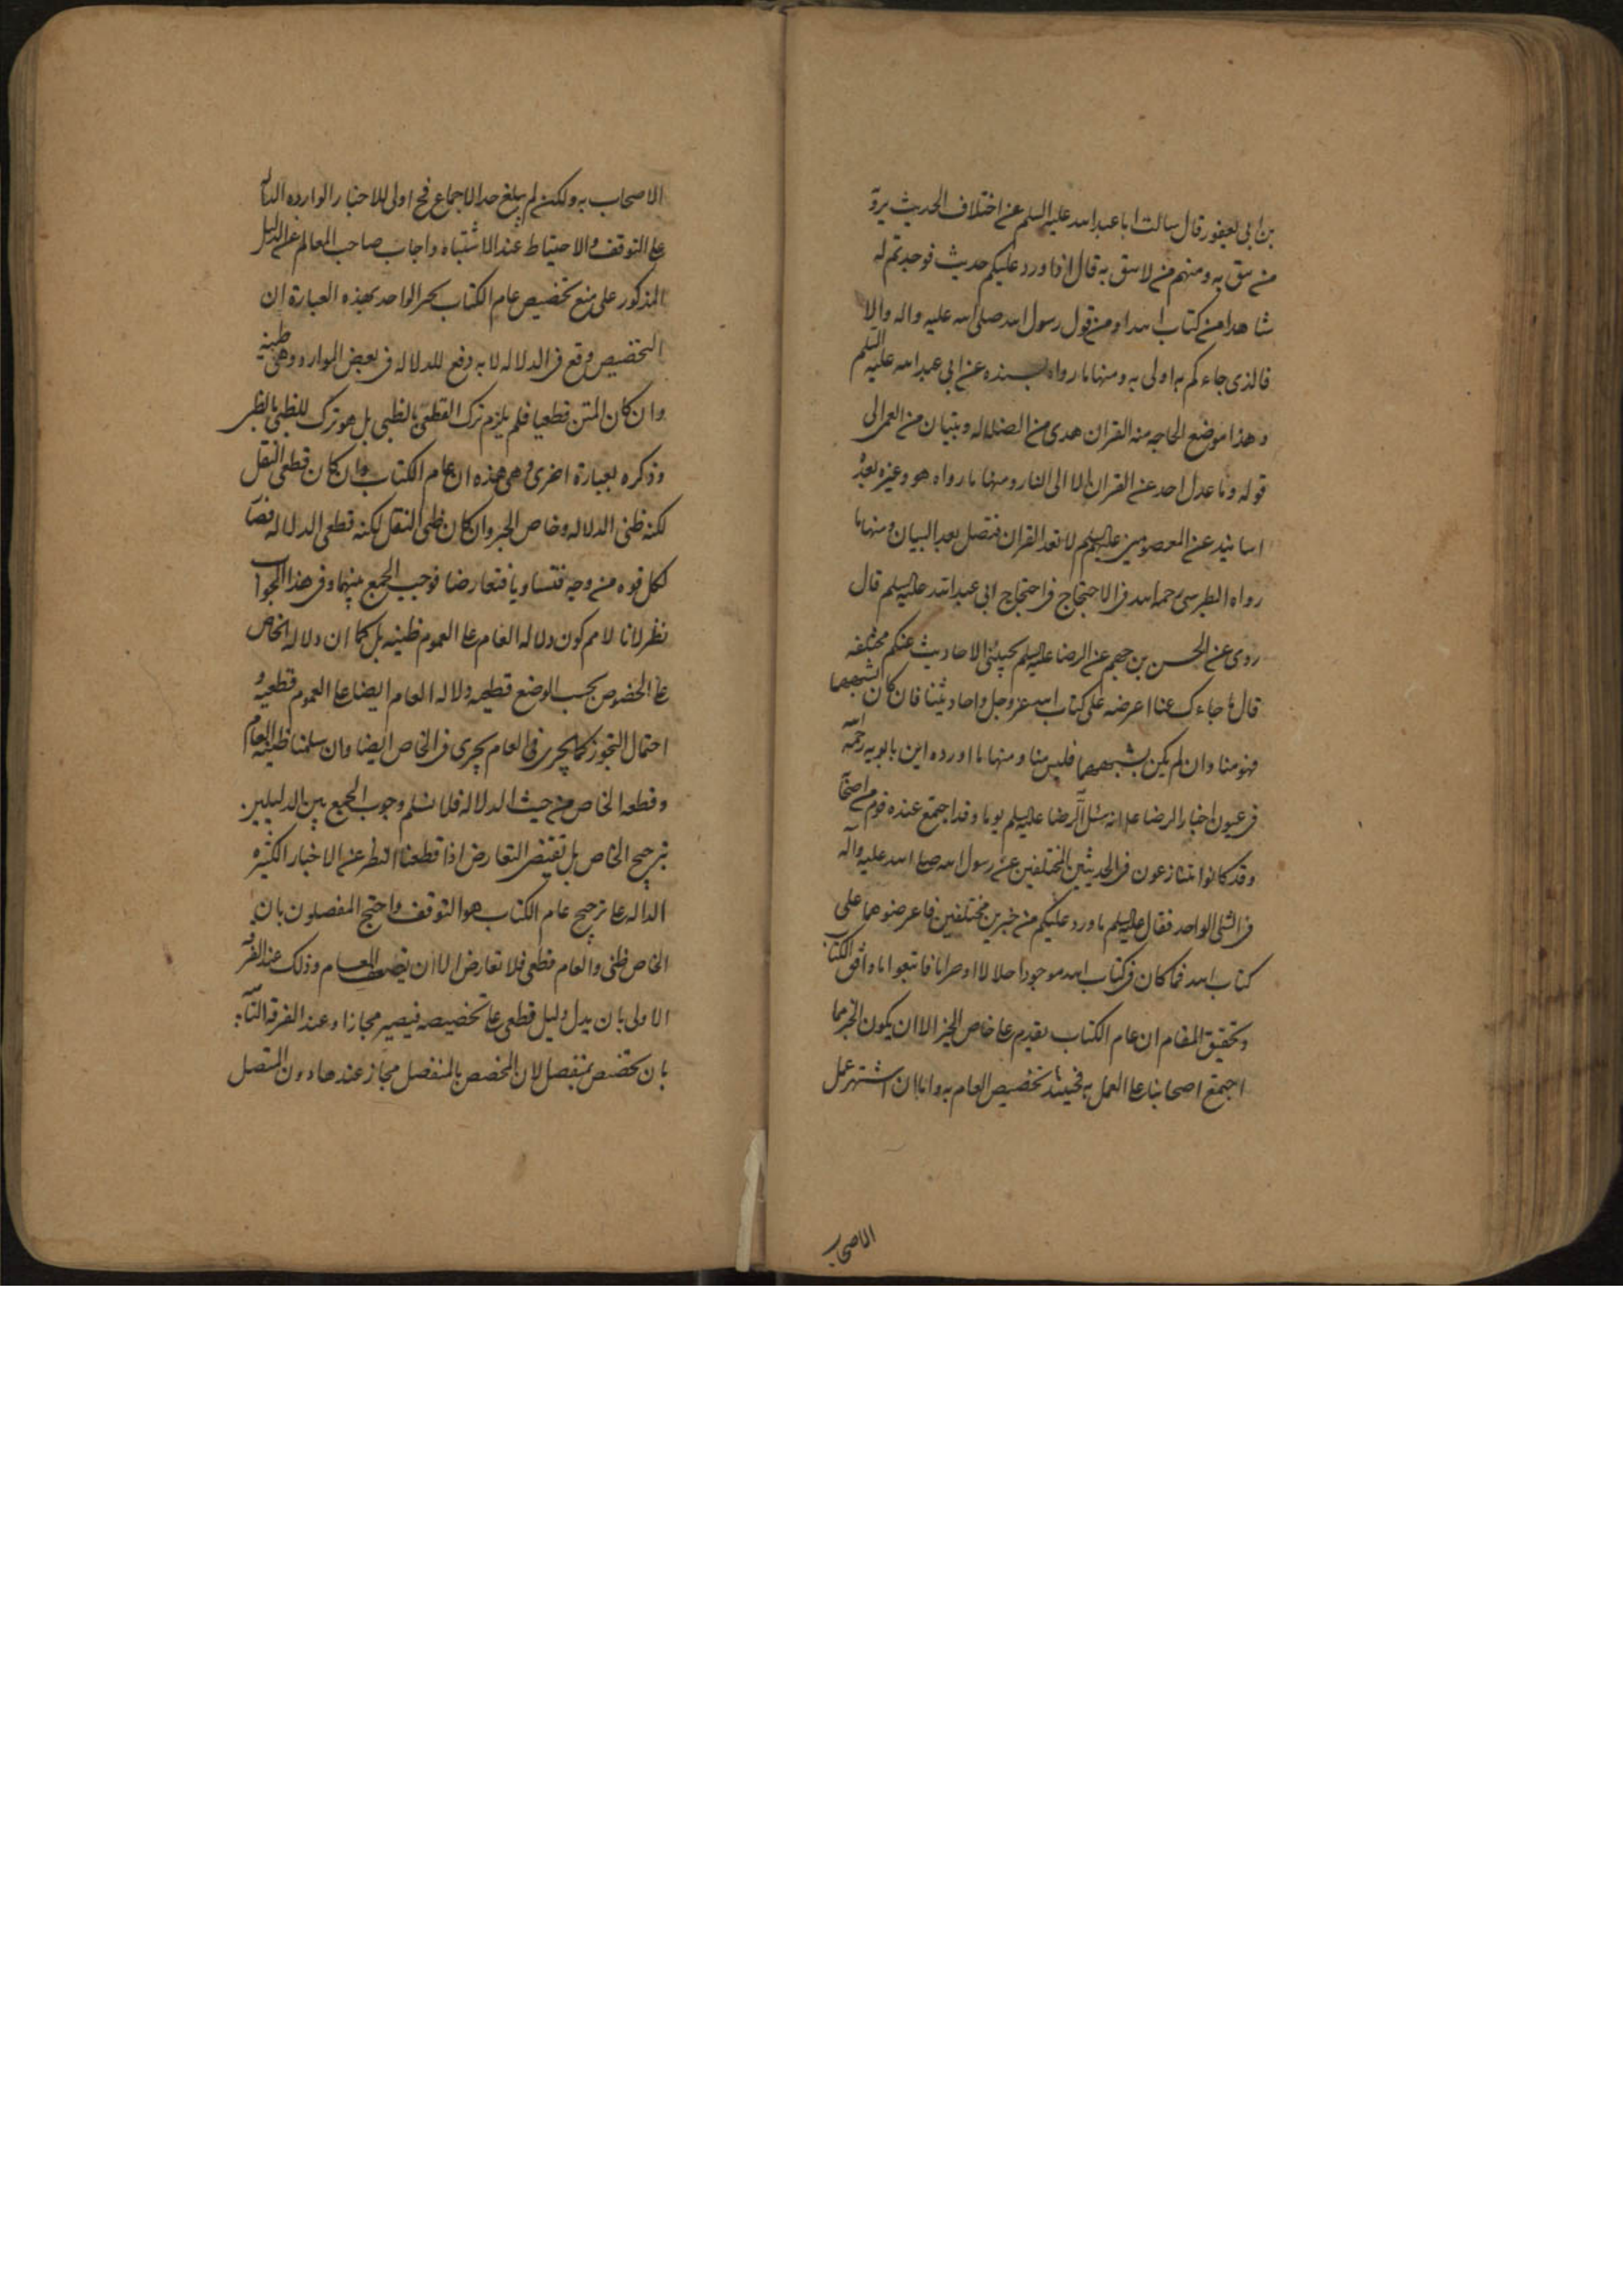 بن ابى يعفور قال سالت ابا عبد الله عليه السلم عن اختلاف الحديث يرو
من نثق به ومنهم من لا نثق به قال اذا ورد عليكم حديث فوجدتم له
شاهدا من كتاب الله او من قول رسول الله صلى الله عليه واله والا
فالذى جاءكم به اولى به ومنها ما رواه بسنده عن ابى عبد الله عليه السلم
وهذا موضع الحاجه منه القران هدى من الضلاله وتبيان من العمى الى
قوله وما عدل احد عن القران الا الى النار ومنها ما رواه هو وغيره بعدة
اسانيد عن المعصومين عليهم السلم لا تعد القران فتضل بعد البيان ومنها ما
رواه الطبرسى رحمه الله فى الاحتجاج فى احتجاج ابى عبد الله عليه السلم قال
روى عن الحسن بن جهم عن الرضا عليه السلم تجيئنى الاحاديث عنكم مختلفه
قال ما جاءك عنا اعرضه على كتاب الله عز وجل واحاديثنا فان كان اشبههما
فهو منا وان لم يكن يشبههما فليس منا ومنها ما اورده ابن بابويه رحمه الله
فى عيون اخبار الرضا انه سئل الرضا عليه السلم يوما وقد اجتمع عنده قوم من اصحا
وقد كانوا يتنازعون فى الحديثين المختلفين عن رسول الله صلى الله عليه وآله
فى الشئ الواحد فقال عليه السلم ما ورد عليكم من خبرين مختلفين فاعرضوهما على
كتاب الله فما كان فى كتاب الله موجودا حلالا او حراما فاتبعوا ما وافق الكتاب
وتحقيق المقام ان عام الكتاب يقدم على خاص الخبر الا ان يكون الخبر مما
اجتمع اصحابنا على العمل به فحينئذ تخصيص العام به واما ان اشتهر عمل
الاصحاب
الاصحاب به ولكن لم يبلغ حد الاجماع فح اولى للاخبار الوارده الداله
على التوقف والاحتياط عند الاشتباه واجاب صاحب المعالم عن الدليل
المذكور على منع تخصيص عام الكتاب بخبر الواحد بهذه العبارة ان
التخصيص وقع فى الدلاله لا به دفع للدلاله فى بعض الموارد وهى ظنيه
وان كان المتن قطعيا فلم يلزم ترك القطعى بالظنى بل هو ترك للظنى بالظنى
وذكره بعبارة اخرى وهى هذه ان عام الكتاب وان كان قطعى النقل
لكنه ظنى الدلاله وخاص الخبر وان كان ظنى النقل لكنه قطعى الدلاله فصا
لكل قوه من وجه فتساويا فتعارضا فوجب الجمع بينهما وفى هذا الجواب
نظر لانا لا نم كون دلاله العام على العموم ظنيه بل كما ان دلاله الخاص
على الخصوص بحسب الوضع قطعيه دلاله العام ايضا على العموم قطعيه و
احتمال التجوز كما يجرى فى العام يجرى فى الخاص ايضا وان سلمنا ظنيه العام
وقطعه الخاص من حيث الدلاله فلا نسلم وجوب الجمع بين الدليلين
بترجيح الخاص بل تقتضى التعارض اذا قطعنا النظر عن الاخبار الكثيره
الداله على ترجيح عام الكتاب هو التوقف واحتج المفصلون بان
الخاص ظنى والعام قطعى فلا تعارض الا ان يضعف العام وذلك عند الفرقه
الاولى بان يدل دليل قطعى على تخصيصه فيصير مجازا وعند الفرقه الثانيه
بان تخصص بمنفصل لان المخصص بالمنفصل مجاز عندها دون المتصل